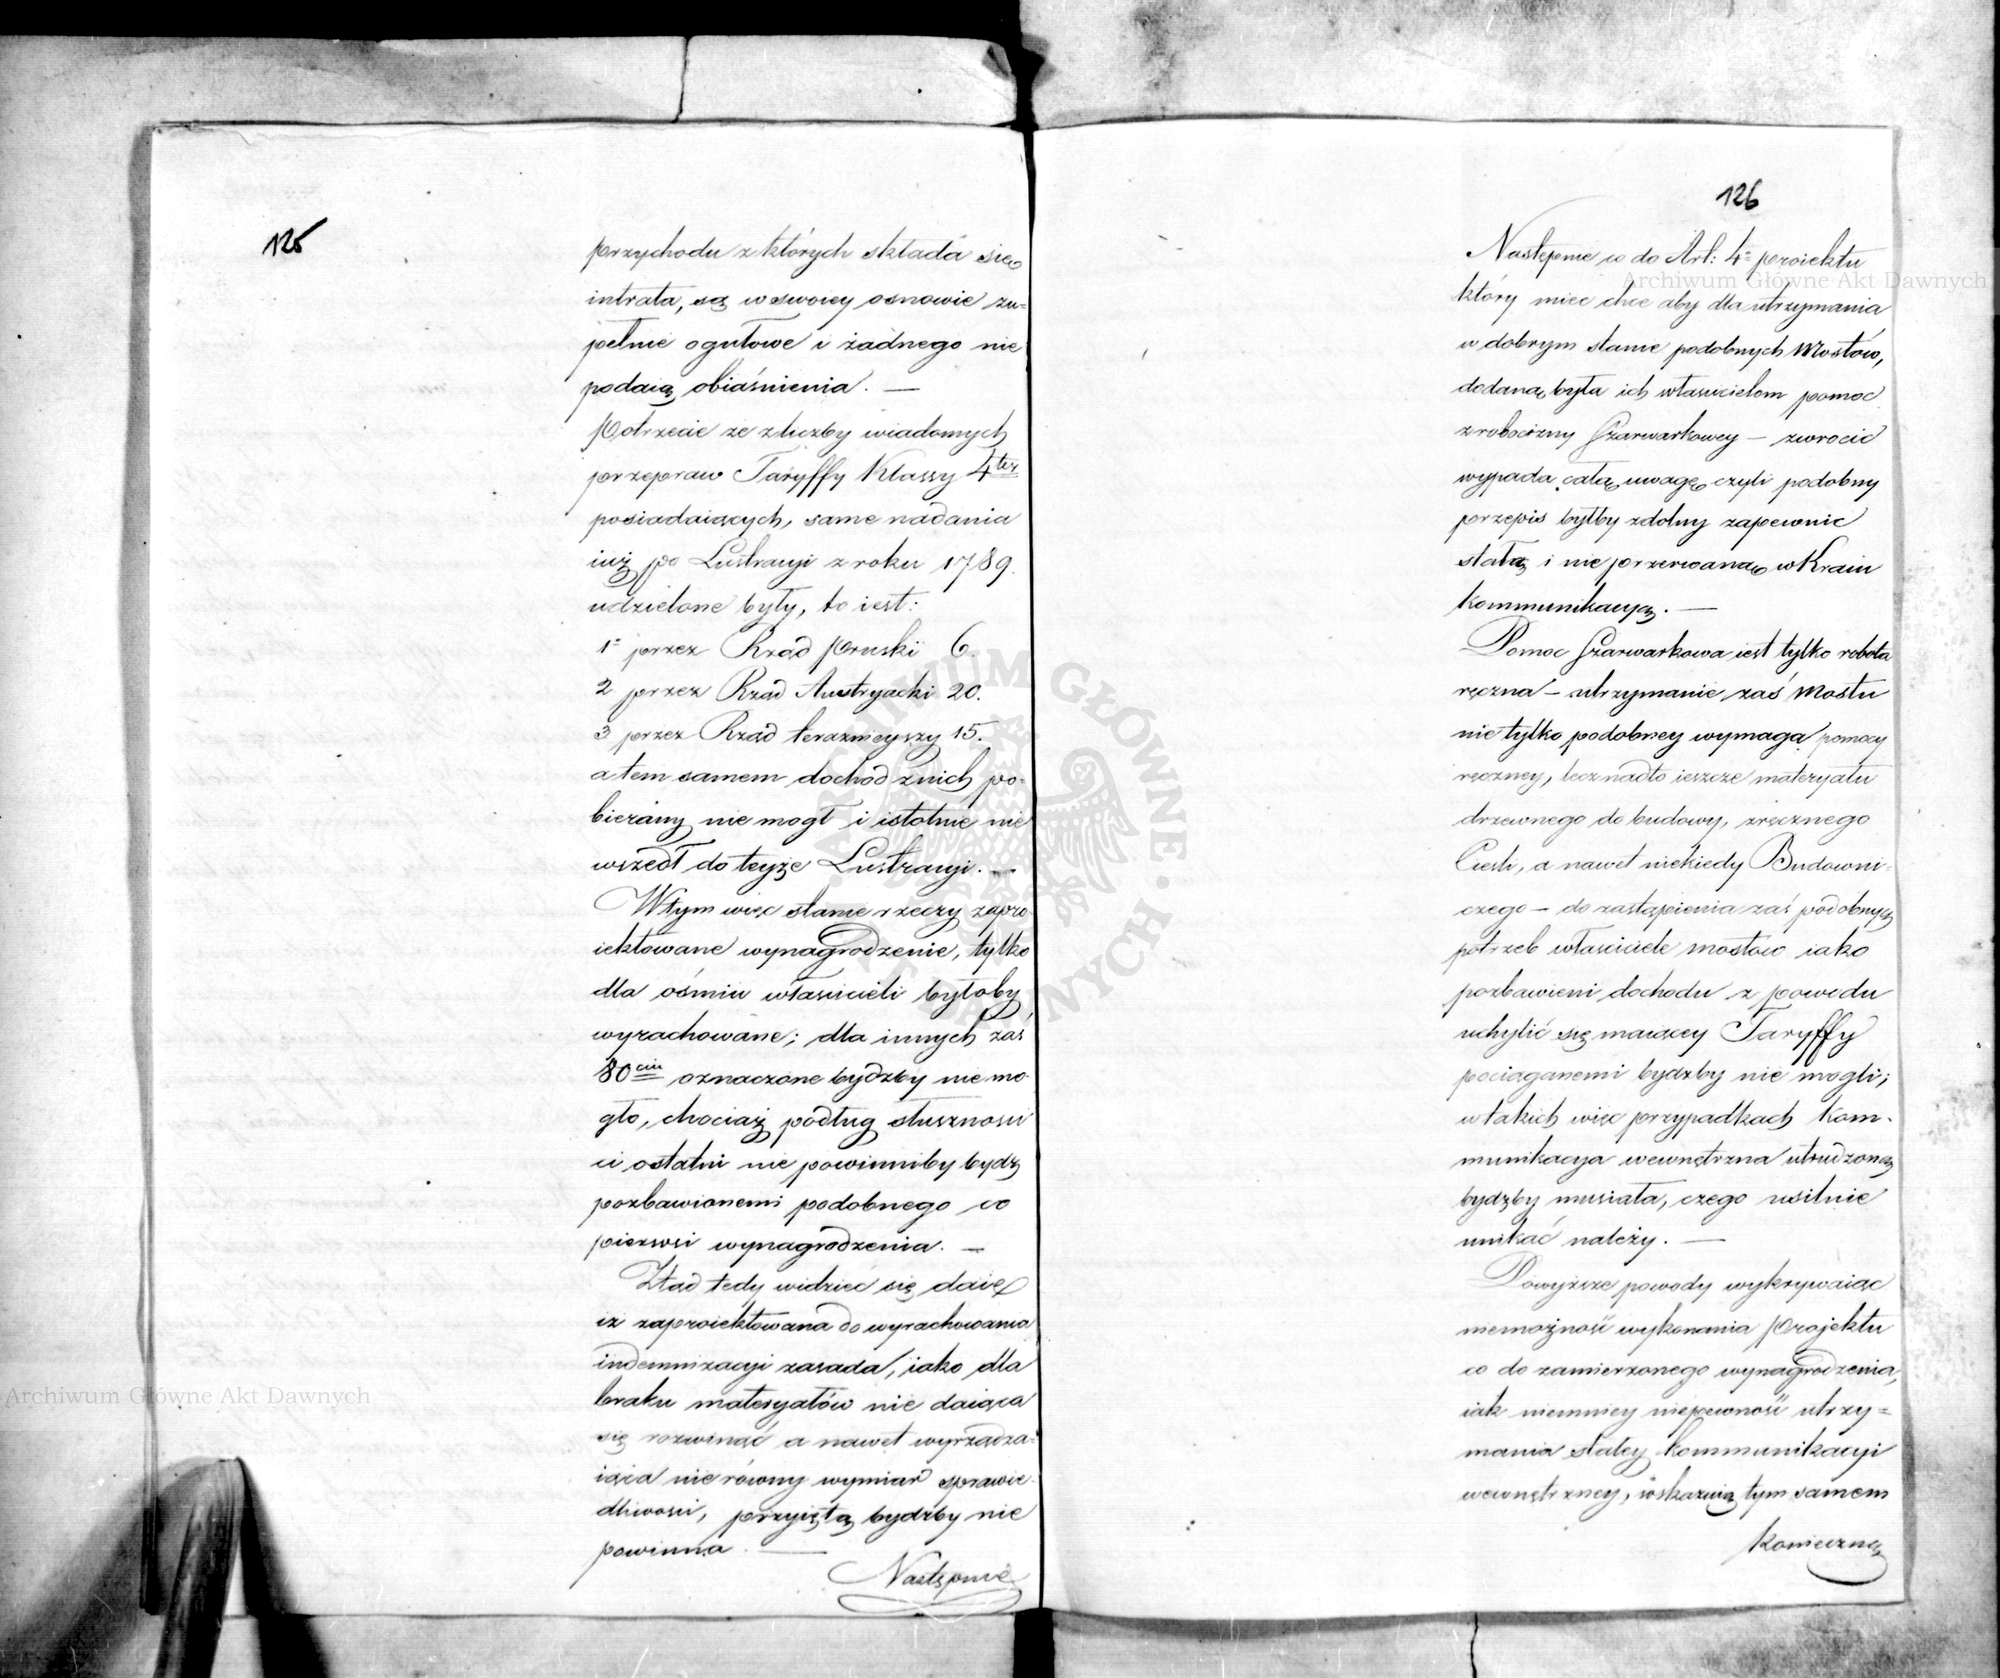 125
przychodu z których składa się
intrata, są w swoiey osnowie zu=
pełnie ogułowe i żadnego nie
podaią obiaśnienia. —
Potrzecie ze zliczby wiadomych
przepraw Taryffy Klassy 4tey
posiadaiących, same nadania
iuż po Lustracyi z roku 1789.
udzielone były, to iest:
1° przez Rząd Pruski 6.
2 przez Rząd Austryacki 20.
3 przez Rząd teraznieyszy 15.
a tem samem dochód znich po=
bierány nie mogł i istotnie nie
wszedł do teyże Lustracyi. —
W tym więc stanie rzeczy zapro
iektowane wynagrodzenie, tylko
dla ośmiu właścicieli byłoby
wyrachowane; dla innych zaś
80ciu oznaczone bydźby nie mo=
gło, chociaż podług słusznosci
ci ostatni nie powinniby bydź
pozbawionemi podobnego co
pierwsi wynagrodzenia. —
Ztąd tedy widzieć się daie
iż zaproiektowana do wyrachowania
indemnizacyi zasada, iako dla
braku materyałów nie daiąca
się rozwinąć a nawet wyrządza=
iąca nie równy wymiar sprawie=
dliwosci, przyiętą bydźby nie
powinna. —
Następnie
126
Następnie co do Art: 4° proiektu
który mieć chce aby dla utrzymania
w dobrym stanie podobnych Mostów,
dodaną była ich właścicielom pomoc
z robocizny Szarwarkowey — zwrocić
wypada całą uwagę czyli podobny
przepis byłby zdolny zapewnić
stałą i nie przerwaną w Kraiu
kommunikacyą. —
Pomoc Szarwarkowa iest tylko robota
ręczna — utrzymanie zaś Mostu
nie tylko podobney wymaga pomocy
ręczney, lecz nadto ieszcze materyału
drzewnego do budowy, zręcznego
Cieśli, a nawet niekiedy Budowni=
czego — do zastąpienia zaś podobnych
potrzeb właściciele mostów iako
pozbawieni dochodu z powodu
uchylić się maiącey Taryffy
pociąganemi bydźby nie mogli;
w takich więc przypadkach Kom=
munikacya wewnętrzna utrudzoną
bydźby musiała, czego usilnie
unikać należy. —
Powyższe powody wykrywaiąc
niemożność wykonania Projektu
co do zamierzonego wynagrodzenia,
iak niemniey niepewność utrzy=
mania stałey kommunikacyi
wewnętrzney, wskazuią tym samem
Konieczną
Archiwum Główne Akt Dawnych
Archiwum Główne Akt Dawnych
ARCHIWUM GŁÓWNE AKT DAWNYCH